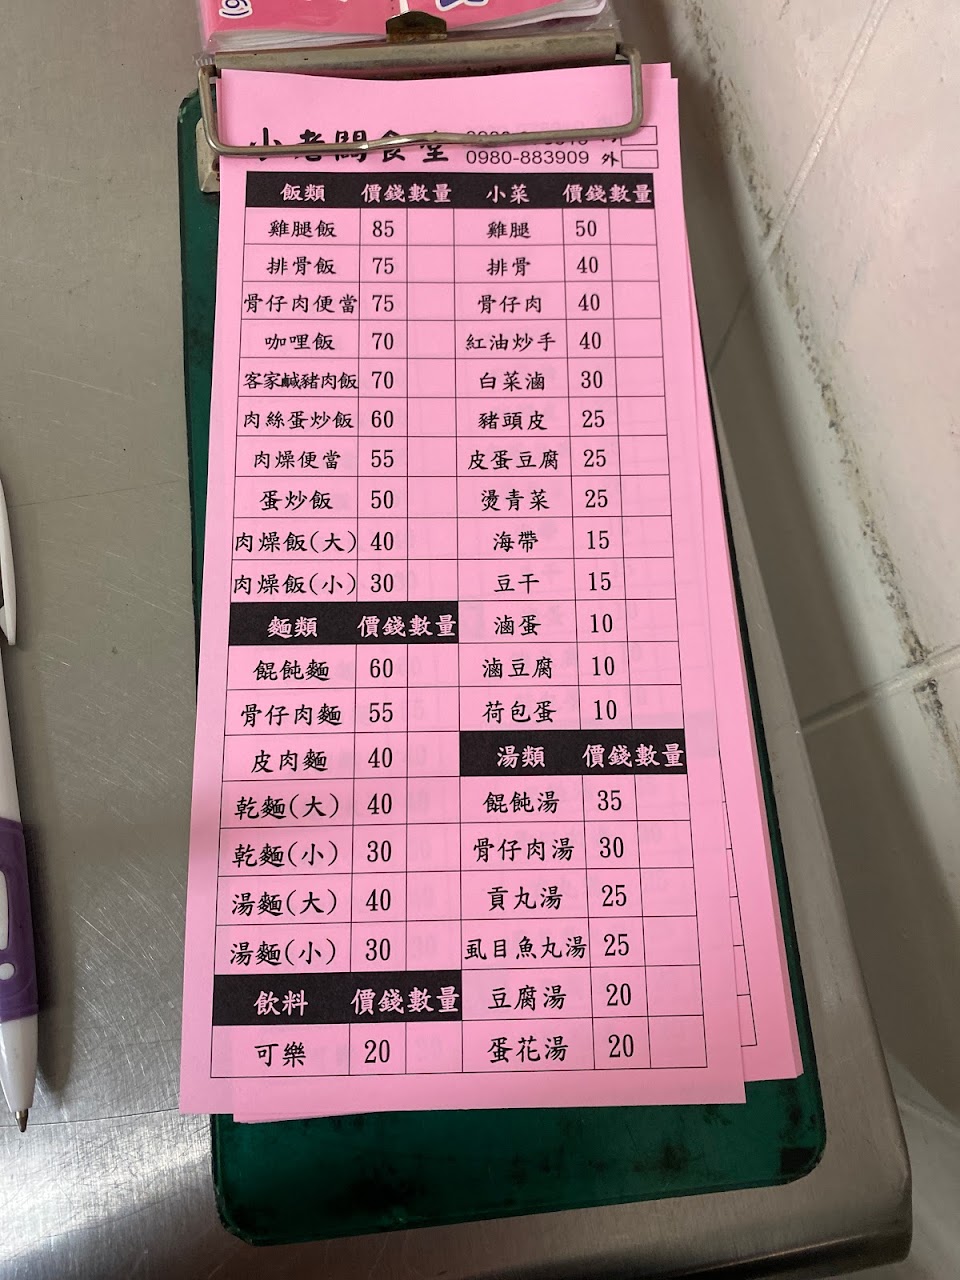 小老闆食堂
0980-883909 外
飯類 價錢 數量
雞腿飯 85
排骨飯 75
骨仔肉便當 75
咖哩飯 70
客家鹹豬肉飯 70
肉絲蛋炒飯 60
肉燥便當 55
蛋炒飯 50
肉燥飯(大) 40
肉燥飯(小) 30
麵類 價錢 數量
餛飩麵 60
骨仔肉麵 55
皮肉麵 40
乾麵(大) 40
乾麵(小) 30
湯麵(大) 40
湯麵(小) 30
飲料 價錢 數量
可樂 20
小菜 價錢 數量
雞腿 50
排骨 40
骨仔肉 40
紅油炒手 40
白菜滷 30
豬頭皮 25
皮蛋豆腐 25
燙青菜 25
海帶 15
豆干 15
滷蛋 10
滷豆腐 10
荷包蛋 10
湯類 價錢 數量
餛飩湯 35
骨仔肉湯 30
貢丸湯 25
虱目魚丸湯 25
豆腐湯 20
蛋花湯 20